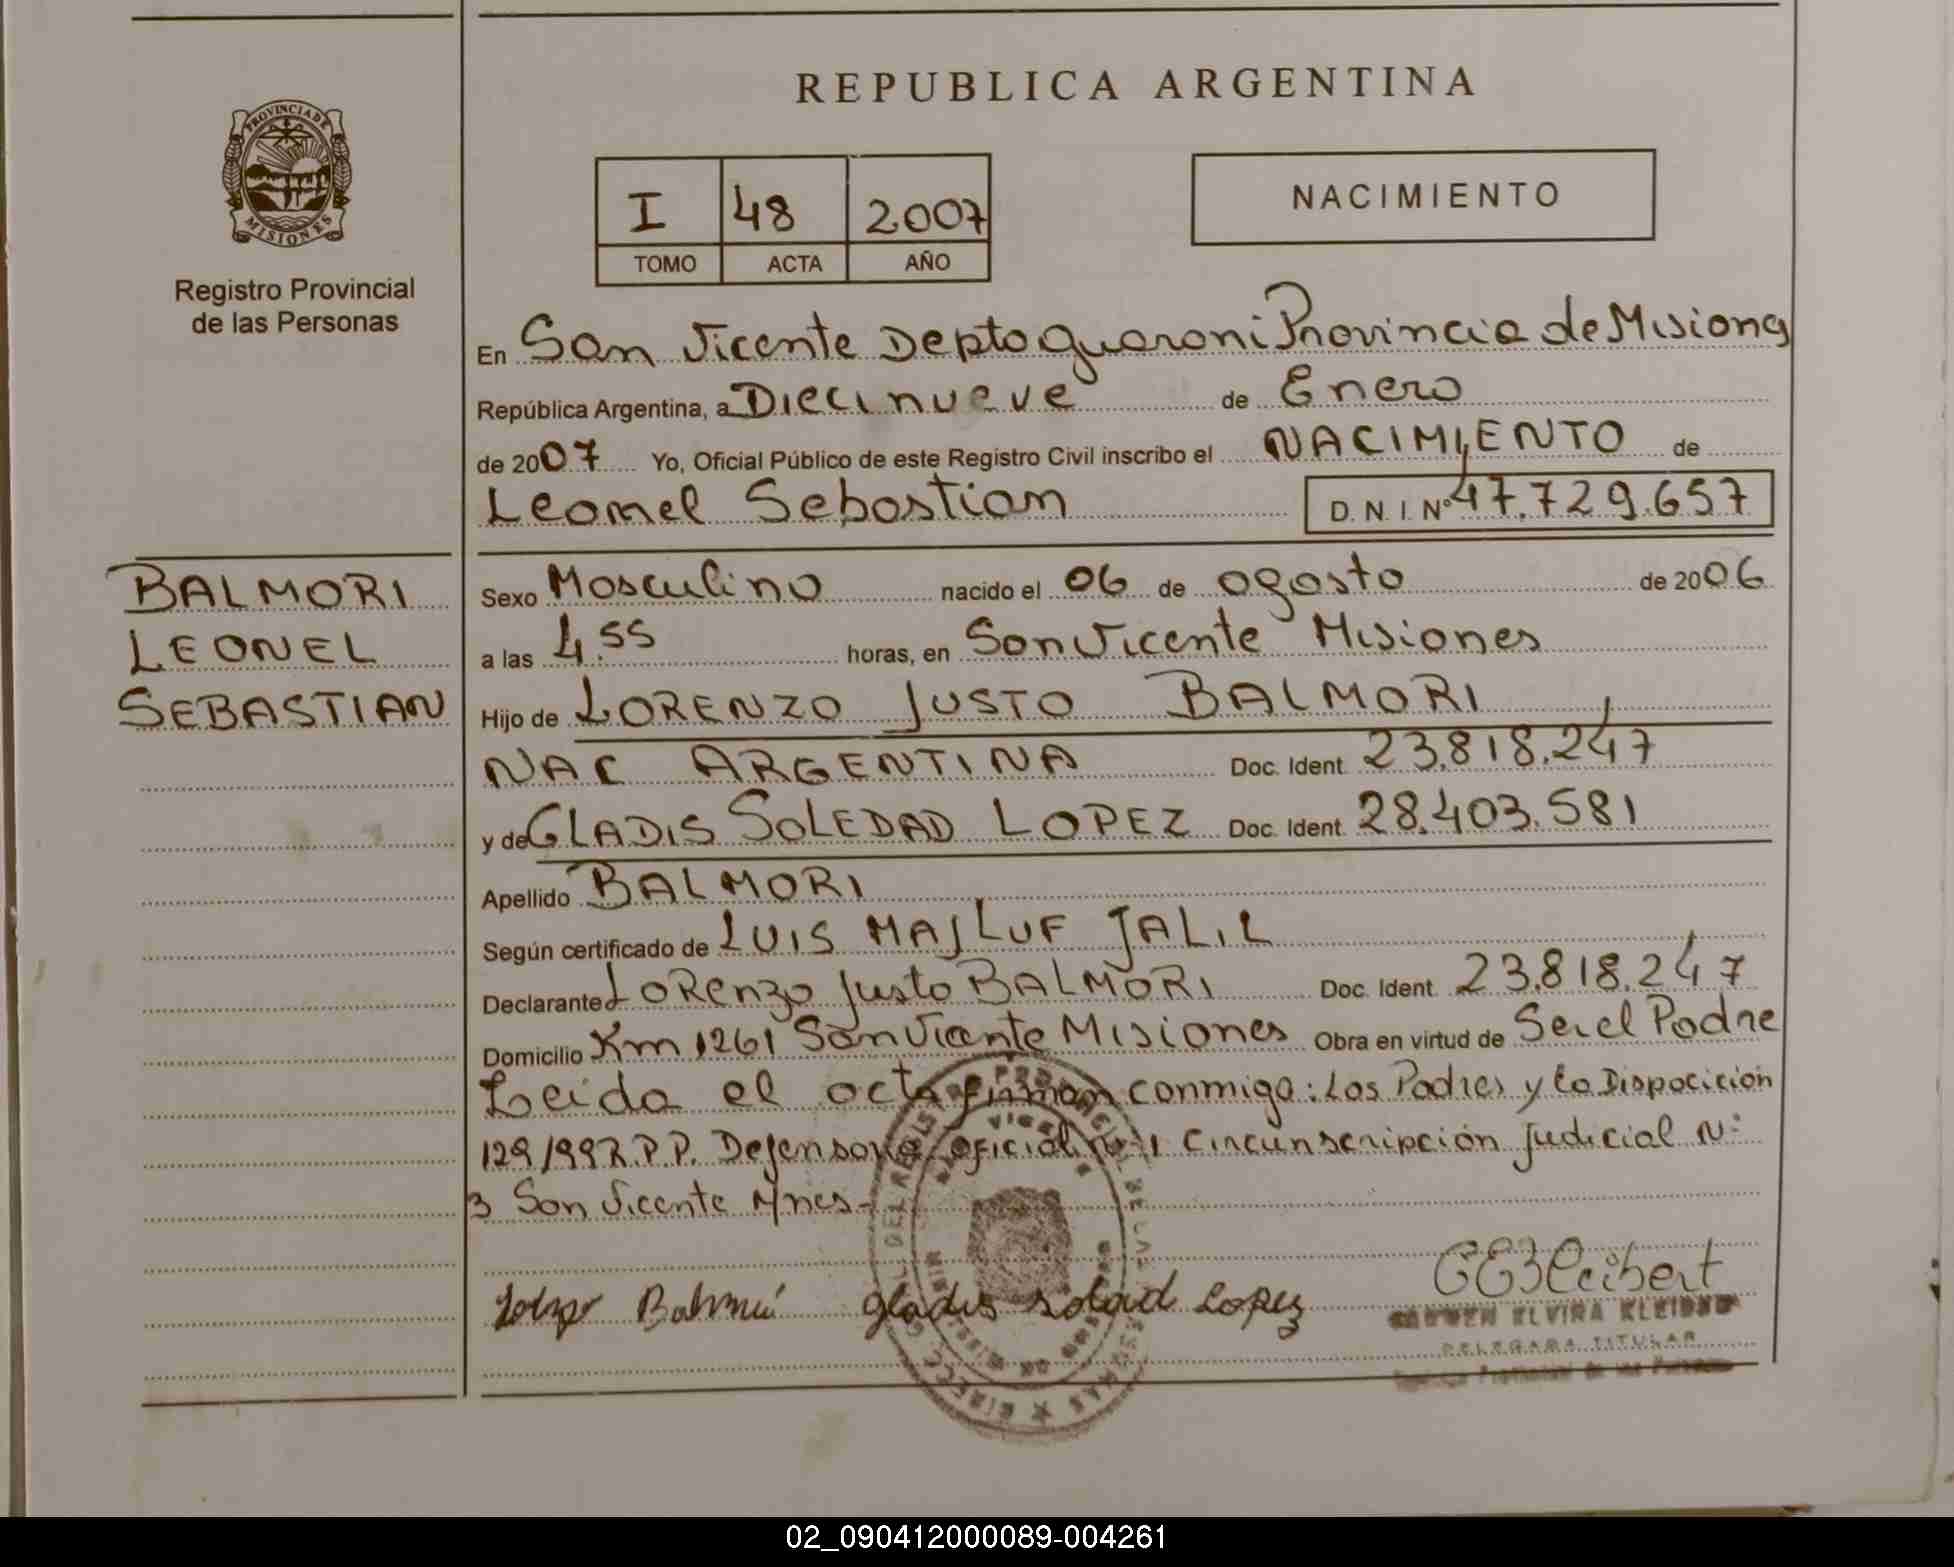 REPUBLICA ARGENTINA
PROVINCIA DE
MISIONES
Registro Provincial
de las Personas
I 48 2007
TOMO ACTA AÑO
NACIMIENTO
En San Vicente Depto Guarani Provincia de Misiones
República Argentina, a Diecinueve de Enero
de 2007 Yo, Oficial Público de este Registro Civil inscribo el NACIMIENTO de
Leonel Sebastian D.N.I. Nº 47.729.657
BALMORI
LEONEL
SEBASTIAN
Sexo Masculino nacido el 06 de agosto de 2006
a las 4.55 horas, en San Vicente Misiones
Hijo de LORENZO JUSTO BALMORI
NAC ARGENTINA Doc. Ident. 23.818.247
y de GLADIS SOLEDAD LOPEZ Doc. Ident. 28.403.581
Apellido BALMORI
Según certificado de LUIS MAJLUF JALIL
Declarante LORENZO Justo BALMORI Doc. Ident. 23.818.247
Domicilio Km 1261 San Vicente Misiones Obra en virtud de Ser el Padre
Leida el acta firman conmigo: Los Padres y la Disposicición
129/99 R.P.P. Defensoria Oficial Nº 1 Circunscripción Judicial Nº
3 San Vicente Mnes-
Balmori Gladis Soledad Lopez
CEKleibert
CARMEN ELVIRA KLEIBERT
DELEGADA TITULAR
02_090412000089-004261